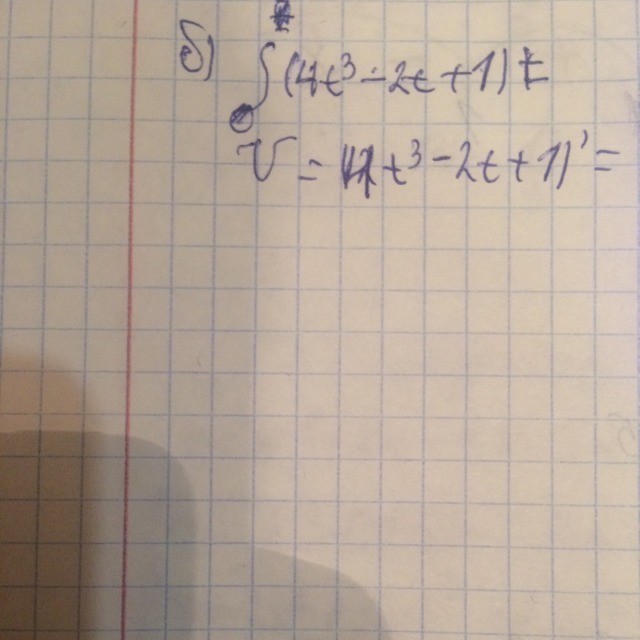 б) ∫(4t³-2t+1)t
V=(4t³-2t+1)'=